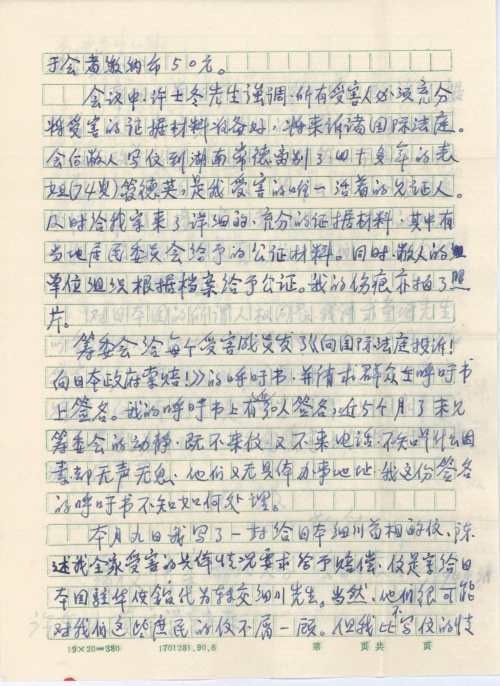 于会者缴纳币50元。
会议中，许士冬先生强调，所有受害人必须充分
将受害的证据材料准备好，将来诉诸国际法庭。
会后敝人写信到湖南常德离别了四十多年的老
姐(74岁)管德英，是我受害的唯一活着的见证人。
及时给我寄来了详细的、充分的证据材料，其中有
当地居民委员会给予的公证材料。同时，敝人的
单位组织根据档案给予公证。我的伤痕亦拍了照
片。
筹委会给每个受害成员发了《向国际法庭投诉！
向日本政府索赔！》的呼吁书，并请求群众在呼吁书
上签名。我的呼吁书上有50人签名，近5个月了未见
筹委会的动静，既不来信，又不来电话，不知啥什么因
素却无声无息，他们又无具体办事地址，我这份签名
的呼吁书不知如何处理。
本月九日我写了一封给日本细川首相的信，陈
述我全家受害的具体情况要求给予赔偿，信是寄给日
本国驻华使馆代为转交细川先生。当然，他们很可能
对我们这些庶民的信不屑一顾。但我不写信的
19×20=380 1701281.90.6 第 页共 页